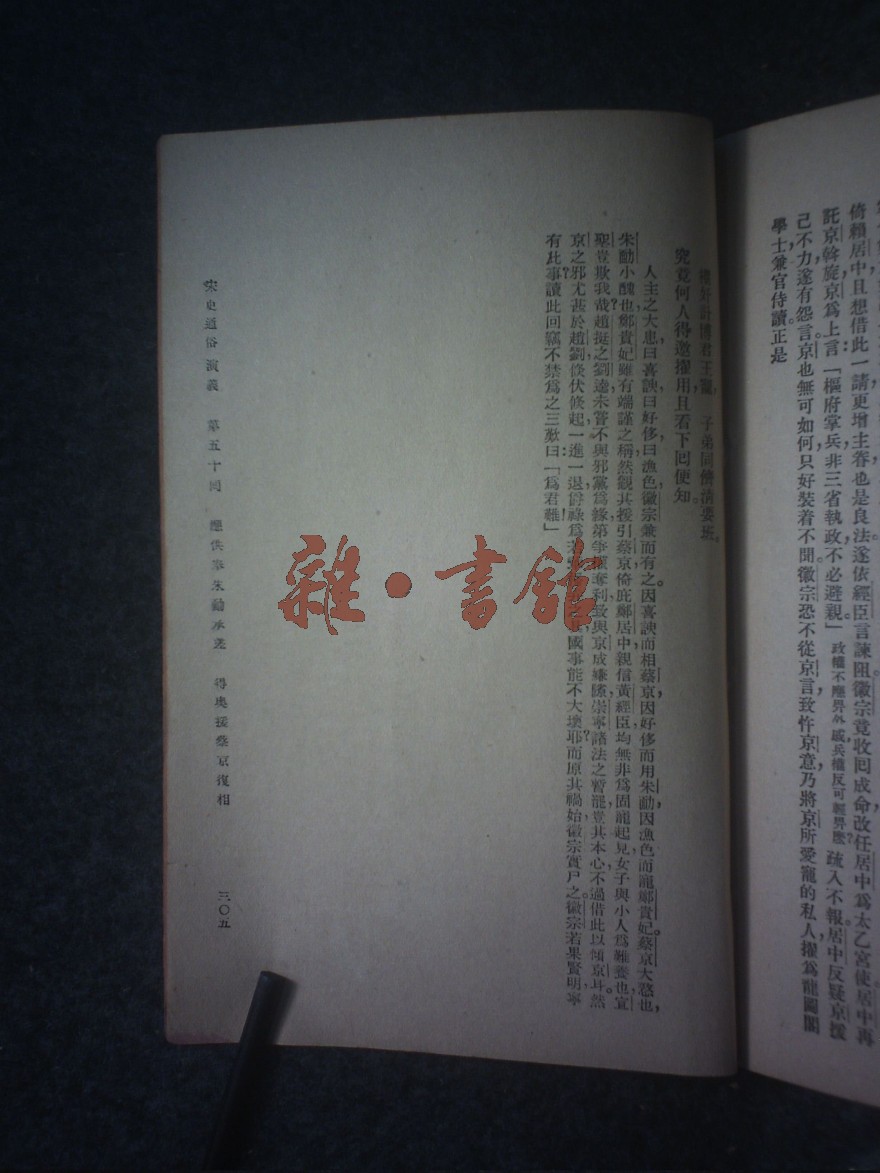 倚賴居中且想借此一請更增主眷也是良法遂依經臣言諫阻徽宗竟收回成命改任居中為太乙宮使居中再
託京斡旋京為上言「樞府掌兵非三省執政不必避親」政權不應畀外戚兵權反可輕畀麼?疏入不報居中反疑京援
己不力遂有怨言京也無可如何只好裝着不聞徽宗恐不從京言致忤京意乃將京所愛寵的私人擢為龍圖閣
學士兼官侍讀正是
權奸計博君王寵,子弟同儕清要班。
究竟何人得邀擢用且看下回便知。
人主之大患曰喜諛曰好侈曰漁色徽宗兼而有之因喜諛而相蔡京因好侈而用朱勔因漁色而寵鄭貴妃蔡京大憝也
朱勔小醜也鄭貴妃雖有端謹之稱然觀其援引蔡京倚庇鄭居中親信黃經臣均無非為固寵起見女子與小人為難養也宣
聖豈欺我哉趙挺之劉逵未嘗不與邪黨為緣第爭權奪利致與京成嫌隙崇寧諸法之暫罷豈其本心不過借此以傾京耳然
京之邪尤甚於趙劉倏伏倏起一進一退爵祿為國事能不大壞耶而原其禍始徽宗實尸之徽宗若果賢明寧
有此事讀此回竊不禁為之三歎曰「為君難!」
宋史通俗演義 第五十回 應供奉朱勔承差 得奧援蔡京復相 三〇五
雜·書館